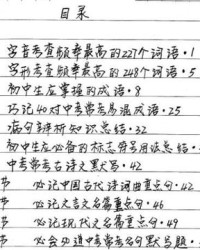 目录
字音考查频率最高的227个词语·1
字形考查频率最高的248个词语·5
初中生应掌握的成语·8
巧记40对中考常考易混成语·25
病句辨析知识总结·32
初中生应必备的标点符号用法总结·
中考常考古诗文默写·42
节 必记中国古代诗词曲重点句·42
节 必记文言文名篇重点句·46
节 必记现代文名篇重点句·49
节 必会必过中考常考名句默写题·